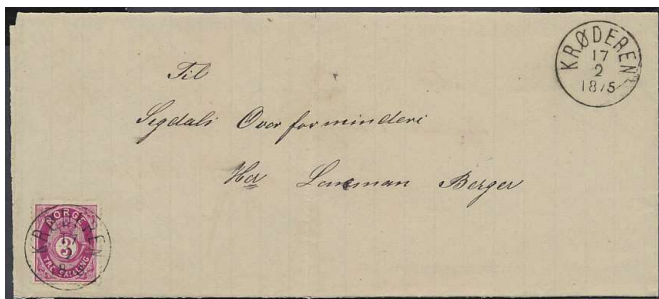 KRØDEREN
17
2
1875
Til
Sigdals Overforminderi
Hr Lensman Berger
NORGE
3
TRE SKILLING
KRØDEREN